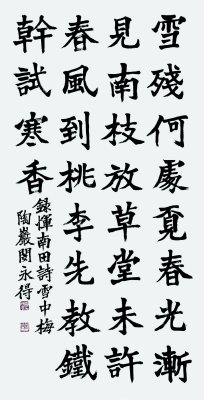 雪殘何處覓春光漸
見南枝放草堂未許
春風到桃李先教鐵
幹試寒香
錄惲南田詩雪中梅
陶巖閔永得